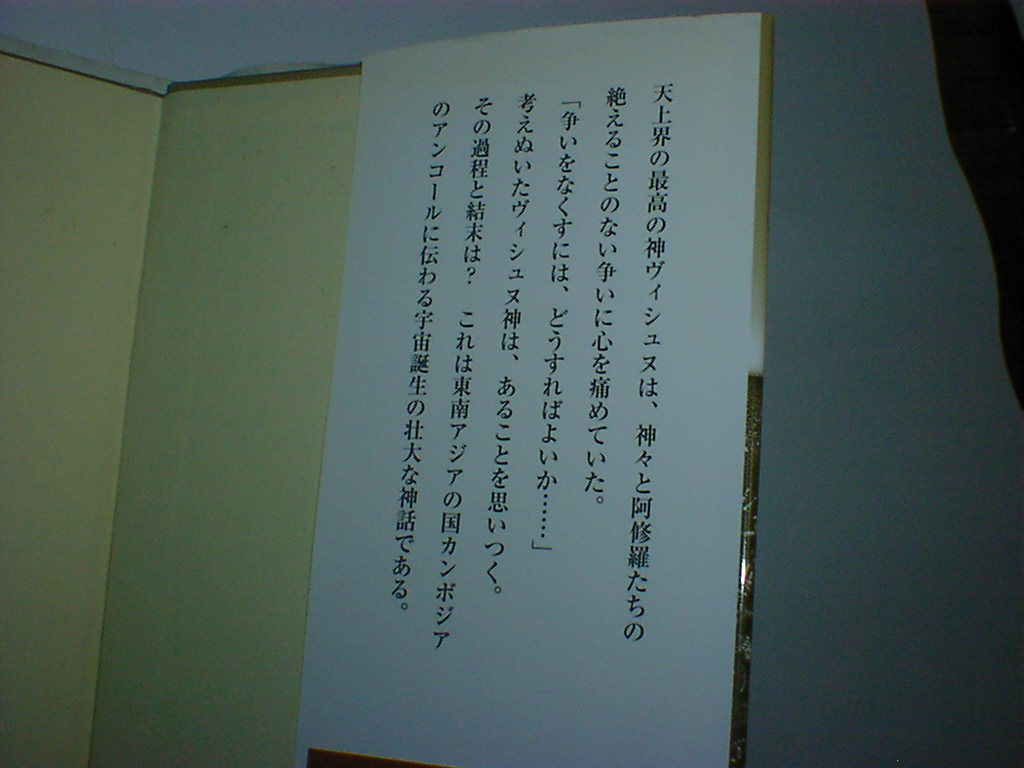 天上界の最高の神ヴィシュヌは、神々と阿修羅たちの
絶えることのない争いに心を痛めていた。
「争いをなくすには、どうすればよいか……」
考えぬいたヴィシュヌ神は、あることを思いつく。
その過程と結末は？　これは東南アジアの国カンボジア
のアンコールに伝わる宇宙誕生の壮大な神話である。